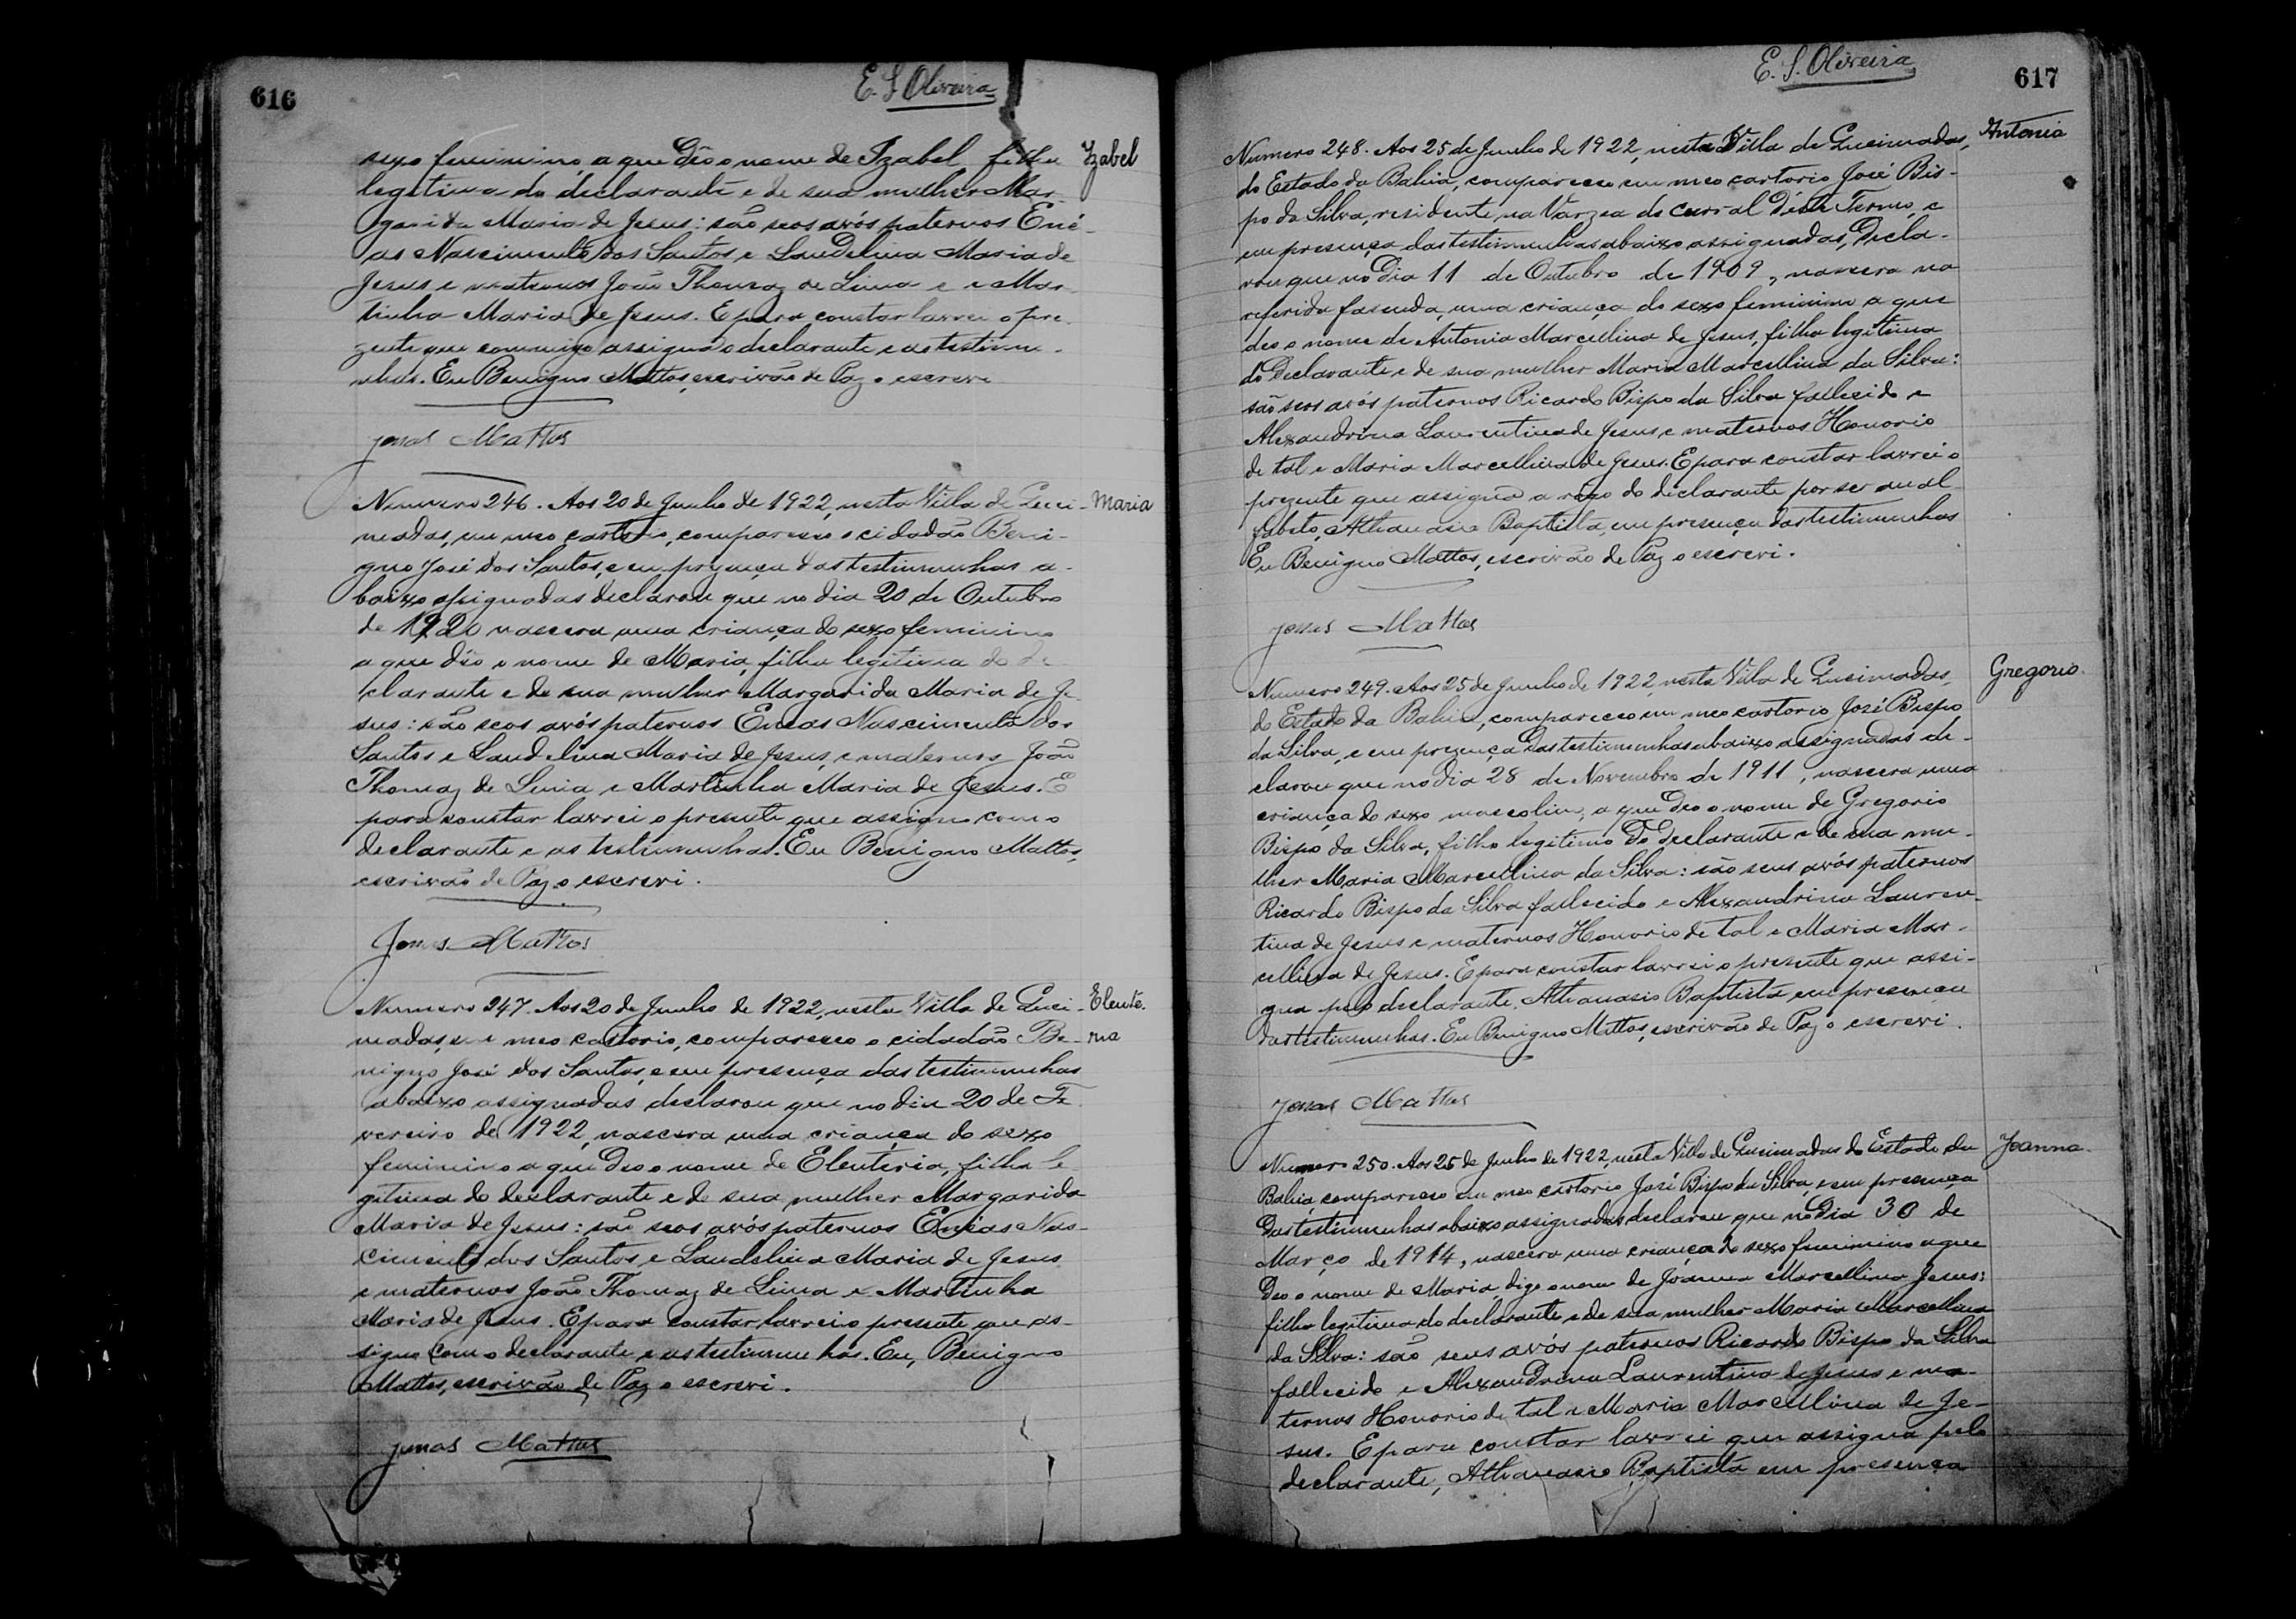 616
E. S. Oliveira
sexo feminino, a que deo o nome de Izabel, filha
Izabel
legitima do declarante e de sua mulher Mar-
garida Maria de Jesus: são seos avós paternos Ené-
as Nascimento dos Santos e Laudelina Maria de
Jesus e maternos João Thomaz de Lima e Mar
tinha Maria de Jesus. E para constar lavrei o pre
zente que commigo assigna o declarante e as testimu-
nhas. Eu Benigno Mattos, escrivão de Paz o escrevi
Jonas Mattos
Numero 246. Aos 20 de Junho de 1922, nesta Villa de Quei-
Maria
madas, em meo cartorio, compareceo o cidadão Beni-
gno José dos Santos, e em prezença das testimunhas a-
baixo assignadas declarou que no dia 20 de Outubro
de 1920 nascera uma criança do sexo feminino
a que deo o nome de Maria, filha legitima do de
clarante e de sua mulher Margarida Maria de Je
sus: são seos avós paternos Eneas Nascimento dos
Santos e Laudelina Maria de Jesus, e maternos João
Thomaz de Lima e Martinha Maria de Jesus. E
para constar lavrei o presente que assigno com o
declarante e as testimunhas. Eu Benigno Mattos,
escrivão de Paz o escrevi.
Jonas Mattos
Numero 247. Aos 20 de Junho de 1922, nesta Villa de Quei-
Eleute-
madas, em meo cartorio, compareceo o cidadão Be-
ria
nigno José dos Santos, e em presença das testimunhas
abaixo assignadas declarou que no dia 20 de Fe
vereiro de 1922, nascera uma criança do sexo
feminino a que deo o nome de Eleuteria, filha le
gitima do declarante e de sua mulher Margarida
Maria de Jesus: são seos avós paternos Enéas Nas-
cimento dos Santos e Laudelina Maria de Jesus
e maternos João Thomaz de Lima e Martinha
Maria de Jesus. E para constar lavrei o presente que as-
signo com o declarante e as testimunhas. Eu, Benigno
Mattos, escrivão de Paz o escrevi.
Jonas Mattos
E. S. Oliveira
617
Numero 248. Aos 25 de Junho de 1922, nesta Villa de Queimadas,
Antonia
do Estado da Bahia, compareceo em meo cartorio José Bis-
po da Silva, residente na Varzea do Curral deste Termo, e
em presença das testimunhas abaixo assignadas, decla-
rou que no dia 11 de Outubro de 1909, nascera na
referida fasenda, uma criança do sexo feminino a que
deo o nome de Antonia Marcellina de Jesus, filha legitima
do declarante e de sua mulher Maria Marcellina da Silva:
são seos avós paternos Ricardo Bispo da Silva fallecido e
Alexandrina Laurentina de Jesus e maternos Honorio
de tal e Maria Marcellina de Jesus. E para constar lavrei o
prezente que assigna a rogo do declarante por ser anal
fabeto, Athanasio Baptista, em presença das testimunhas
Eu Benigno Mattos, escrivão de Paz o escrevi.
Jonas Mattos
Numero 249. Aos 25 de Junho de 1922, nesta Villa de Queimadas,
Gregorio
do Estado da Bahia, compareceo em meo cartorio José Bispo
da Silva, e em prezença das testimunhas abaixo assignadas de-
clarou que no dia 28 de Novembro de 1911, nascera uma
criança do sexo mascolino, a que deo o nome de Gregorio
Bispo da Silva, filho legitimo do declarante e de sua mu-
lher Maria Marcellina da Silva: são seus avós paternos
Ricardo Bispo da Silva fallecido e Alexandrina Lauren-
tina de Jesus e maternos Honorio de tal e Maria Mar-
cellina de Jesus. E para constar lavrei o presente que assi-
gna pelo declarante, Athanasio Baptista em presença
das testimunhas. Eu Benigno Mattos, escrivão de Paz o escrevi.
Jonas Mattos
Numero 250. Aos 25 de Junho de 1922, nesta Villa de Queimadas do Estado da
Joanna
Bahia, compareceo em meo cartorio José Bispo da Silva, e em presença
das testimunhas abaixo assignadas declarou que no dia 30 de
Março de 1914, nascera uma criança do sexo feminino a que
deo o nome de Maria digo o nome de Joanna Marcellina Jesus:
filha legitima do declarante e de sua mulher Maria Marcellina
da Silva: são seus avós paternos Ricardo Bispo da Silva
fallecido e Alexandrina Laurentina de Jesus e ma-
ternos Honorio de tal e Maria Marcellina de Je-
sus. E para constar lavrei que assigna pelo
declarante, Athanasio Baptista em presença